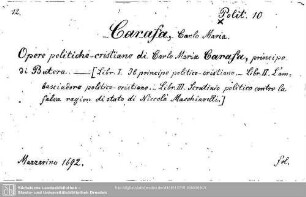 12.
Polit. 10
Carafa, Carlo Maria.
Opere politiche-cristiane di Carlo Maria Carafa, principe
di Butera. — [Libr. I. Il principe politico-cristiano. — Libr. II. L'am-
basciadore politico-cristiano. — Libr. III. Scrutinio politico contro la
falsa ragion di stato di Niccolò Macchiavelli.]
Mazzarino 1692.
Fol.